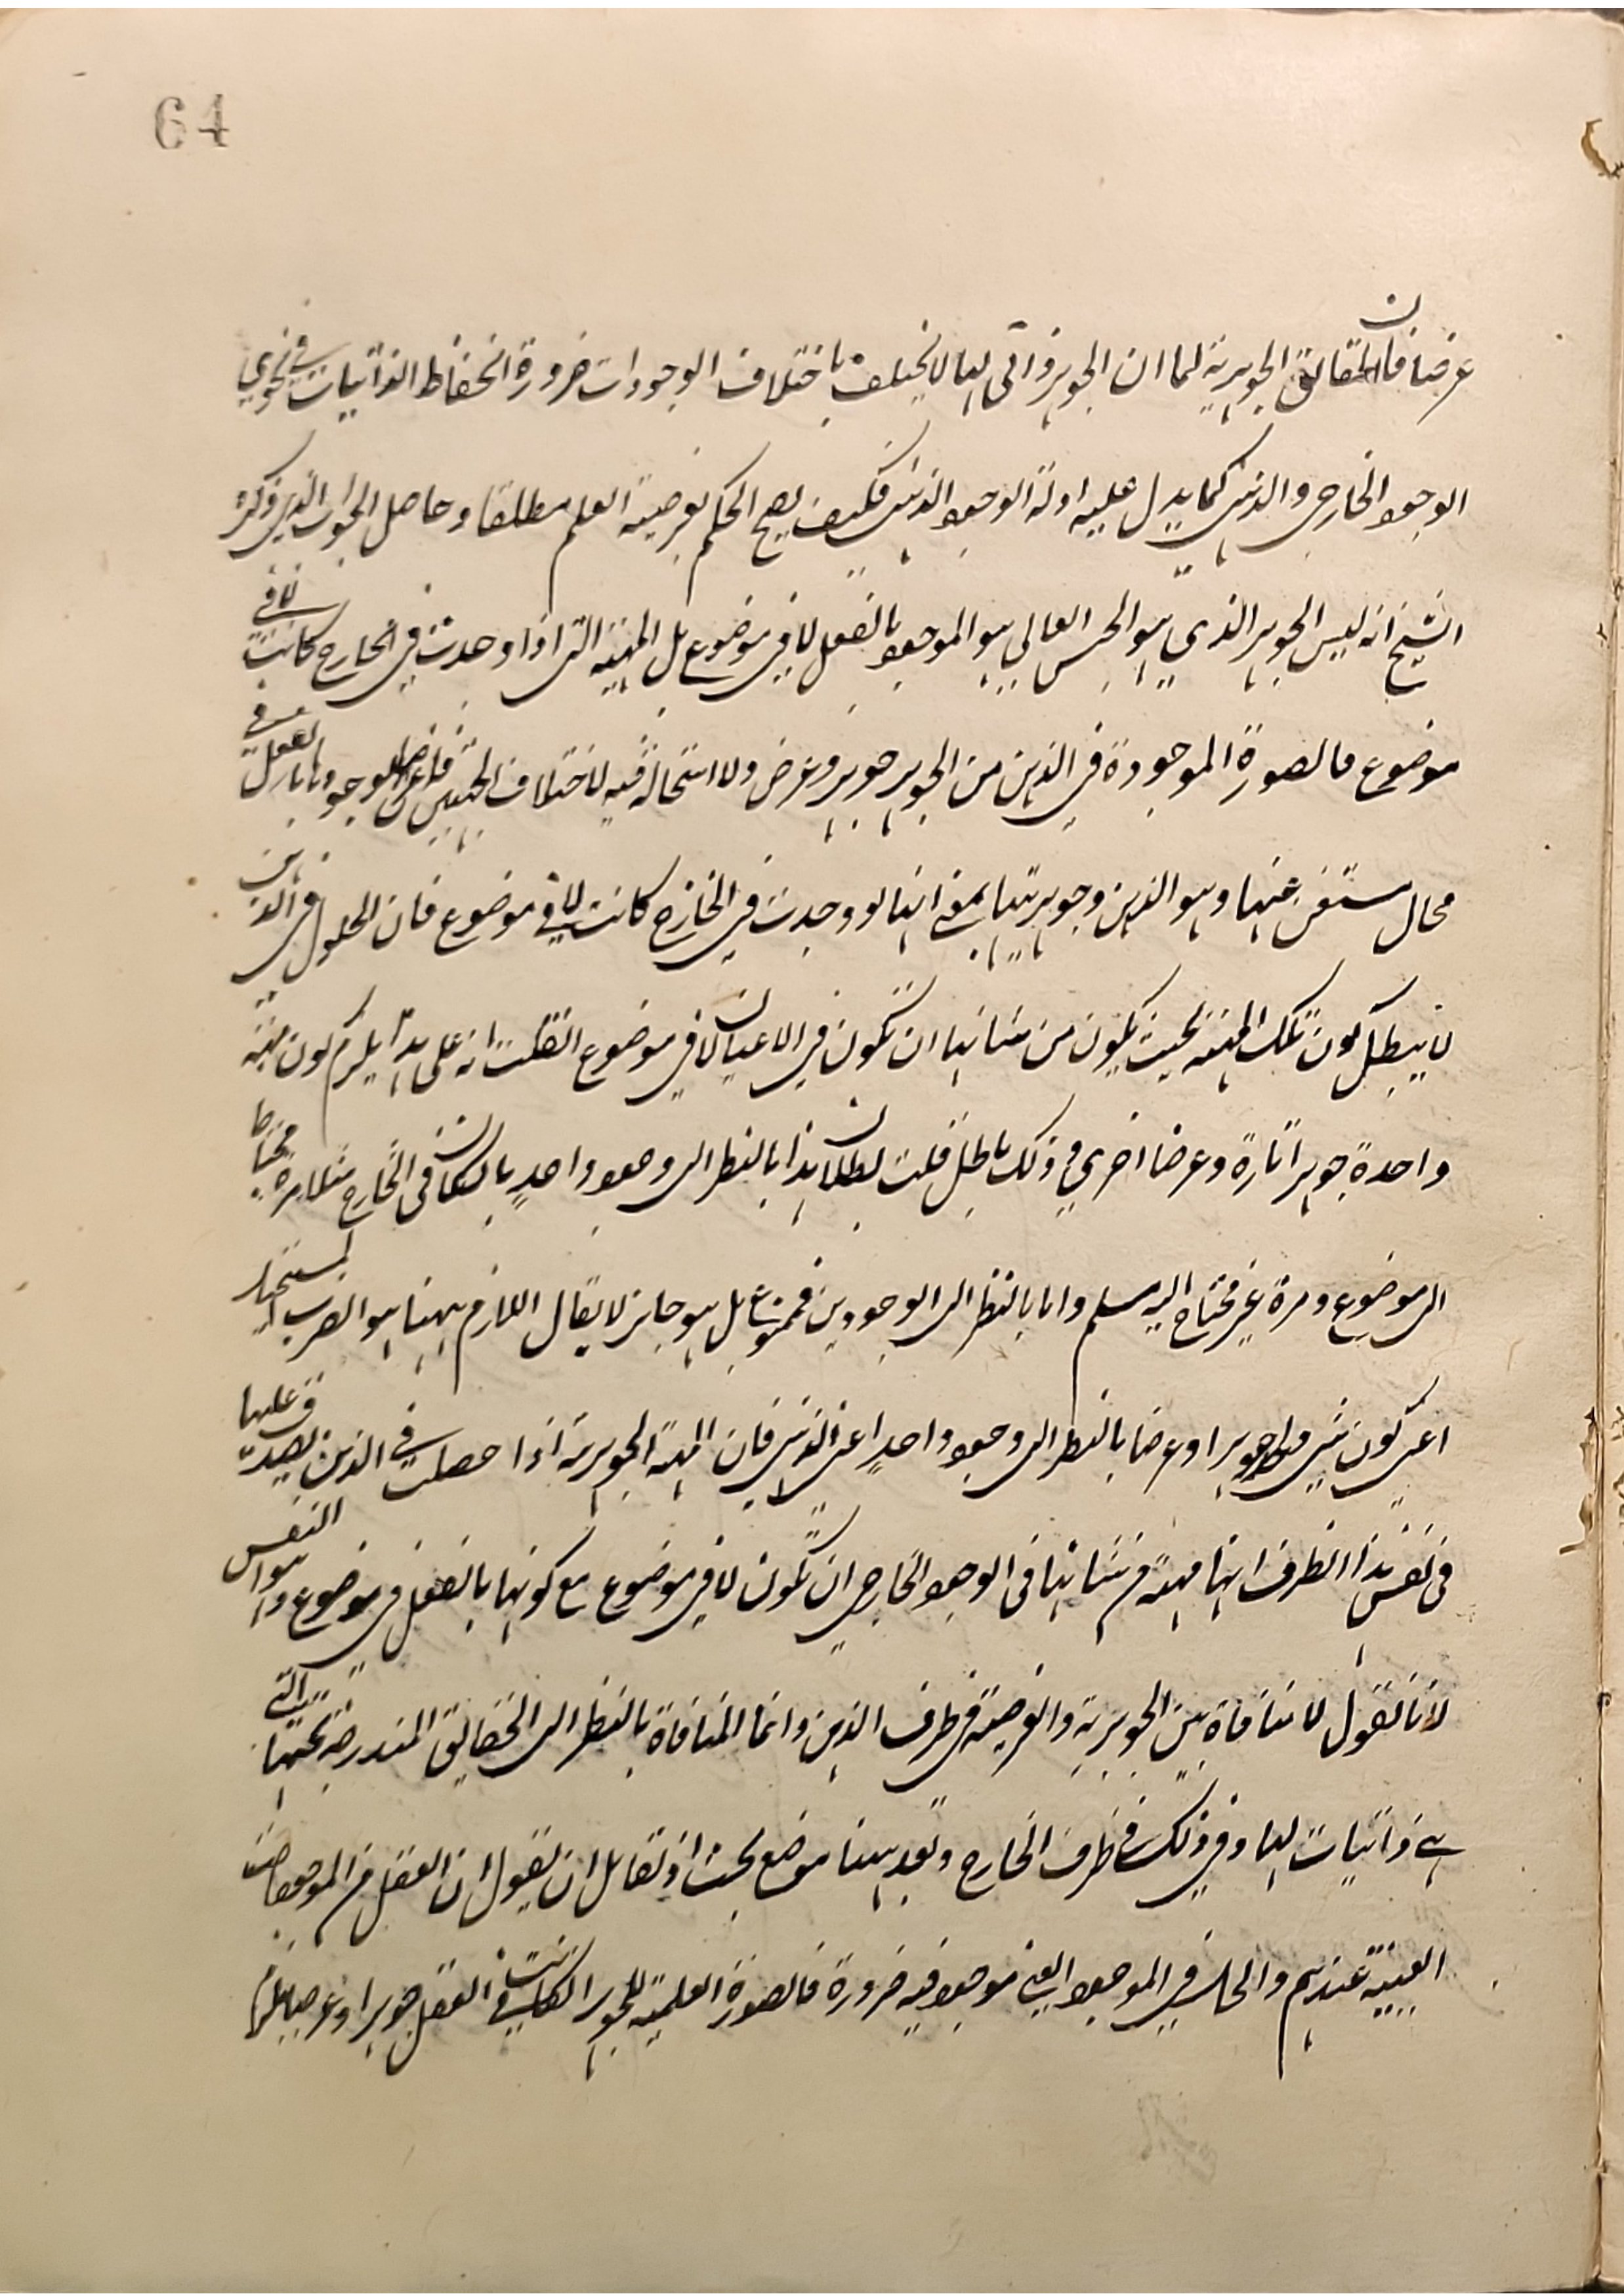 64
عرضا فان الحقائق الجوهرية لما ان الجوهر ذاتى لها لا يختلف باختلاف الوجودات ضرورة انحفاظ الذاتيات في نحوي
الوجود الخارجى والذهنى كما يدل عليه ادلة الوجود الذهنى فكيف يصح الحكم بعرضية العلم مطلقا وحاصل الجواب الذى ذكره
الشيخ انه ليس الجوهر الذي هو الجنس العالي هو الموجود بالفعل لا فى موضوع بل المهية التى اذا وجدت في الخارج كانت لا في
موضوع فالصورة الموجودة في الذهن من الجوهر جوهر وعرض ولا استحالة فيه لاختلاف الجهتين فاعراض لوجودها بالفعل في
محال مستغن عنها وهو الذهن وجوهريتها بمعنى انها لو وجدت في الخارج كانت لا في موضوع فان الحلول فى الذهن
لا يبطل كون تلك المهية بحيث يكون من شانها ان تكون في الاعيان لا في موضوع انقلت انه على هذا يلزم كون مهية
واحدة جوهرا تارة وعرضا اخري وذلك باطل قلت بطلان هذا بالنظر الى وجود واحد بان كان فى الخارج مثلا مرة محتاجا
الى موضوع ومرة غير محتاج اليه مسلم واما بالنظر الى الوجودين فممنوع بل هو جائز لا يقال اللازم ههنا هو الضرب المستحيل
اعنى كون شى واحد جوهرا وعرضا بالنظر الى وجود واحد اعنى الذهنى فان المهية الجوهرية اذا حصلت في الذهن يصدق عليها
فى نفس هذا الظرف انها مهية من شانها فى الوجود الخارجى ان تكون لا في موضوع مع كونها بالفعل فى موضوع وهو النفس
لانا نقول لا منافاة بين الجوهرية والعرضية فى ظرف الذهن وانما المنافاة بالنظر الى الحقايق المندرجة تحتها التى
هى ذاتيات لها وذلك فى ظرف الخارج وبعد ههنا موضع بحث اذ لقائل ان يقول ان العقل من الموجودات
العينية عندهم والحال في الموجود العينى موجود فيه ضرورة فالصورة العلمية للجوهر ان كانت في العقل جوهرا وعرضا يلزم